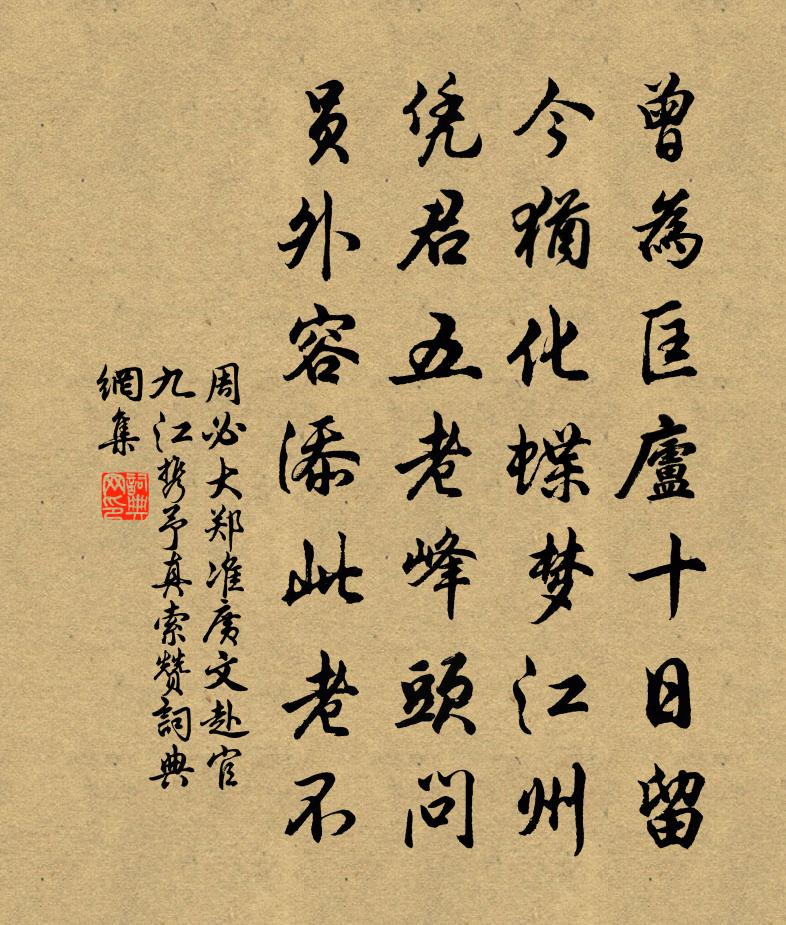 曾為匡廬十日留
今猶化蝶梦江州
凭君五老峰頭问
员外容添此老不
周必大郑准廣文赴官
九江携予真索赞詞典
網集
詞典网印